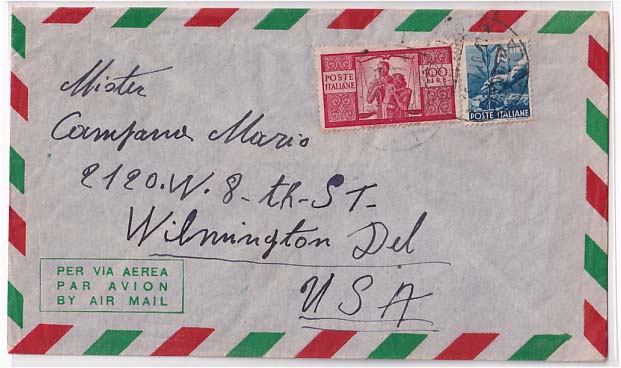 POSTE
ITALIANE
100
LIRE
POSTE ITALIANE
Mister
Campana Mario
2120.W. 8-th-ST-
Wilmington Del
USA
PER VIA AEREA
PAR AVION
BY AIR MAIL